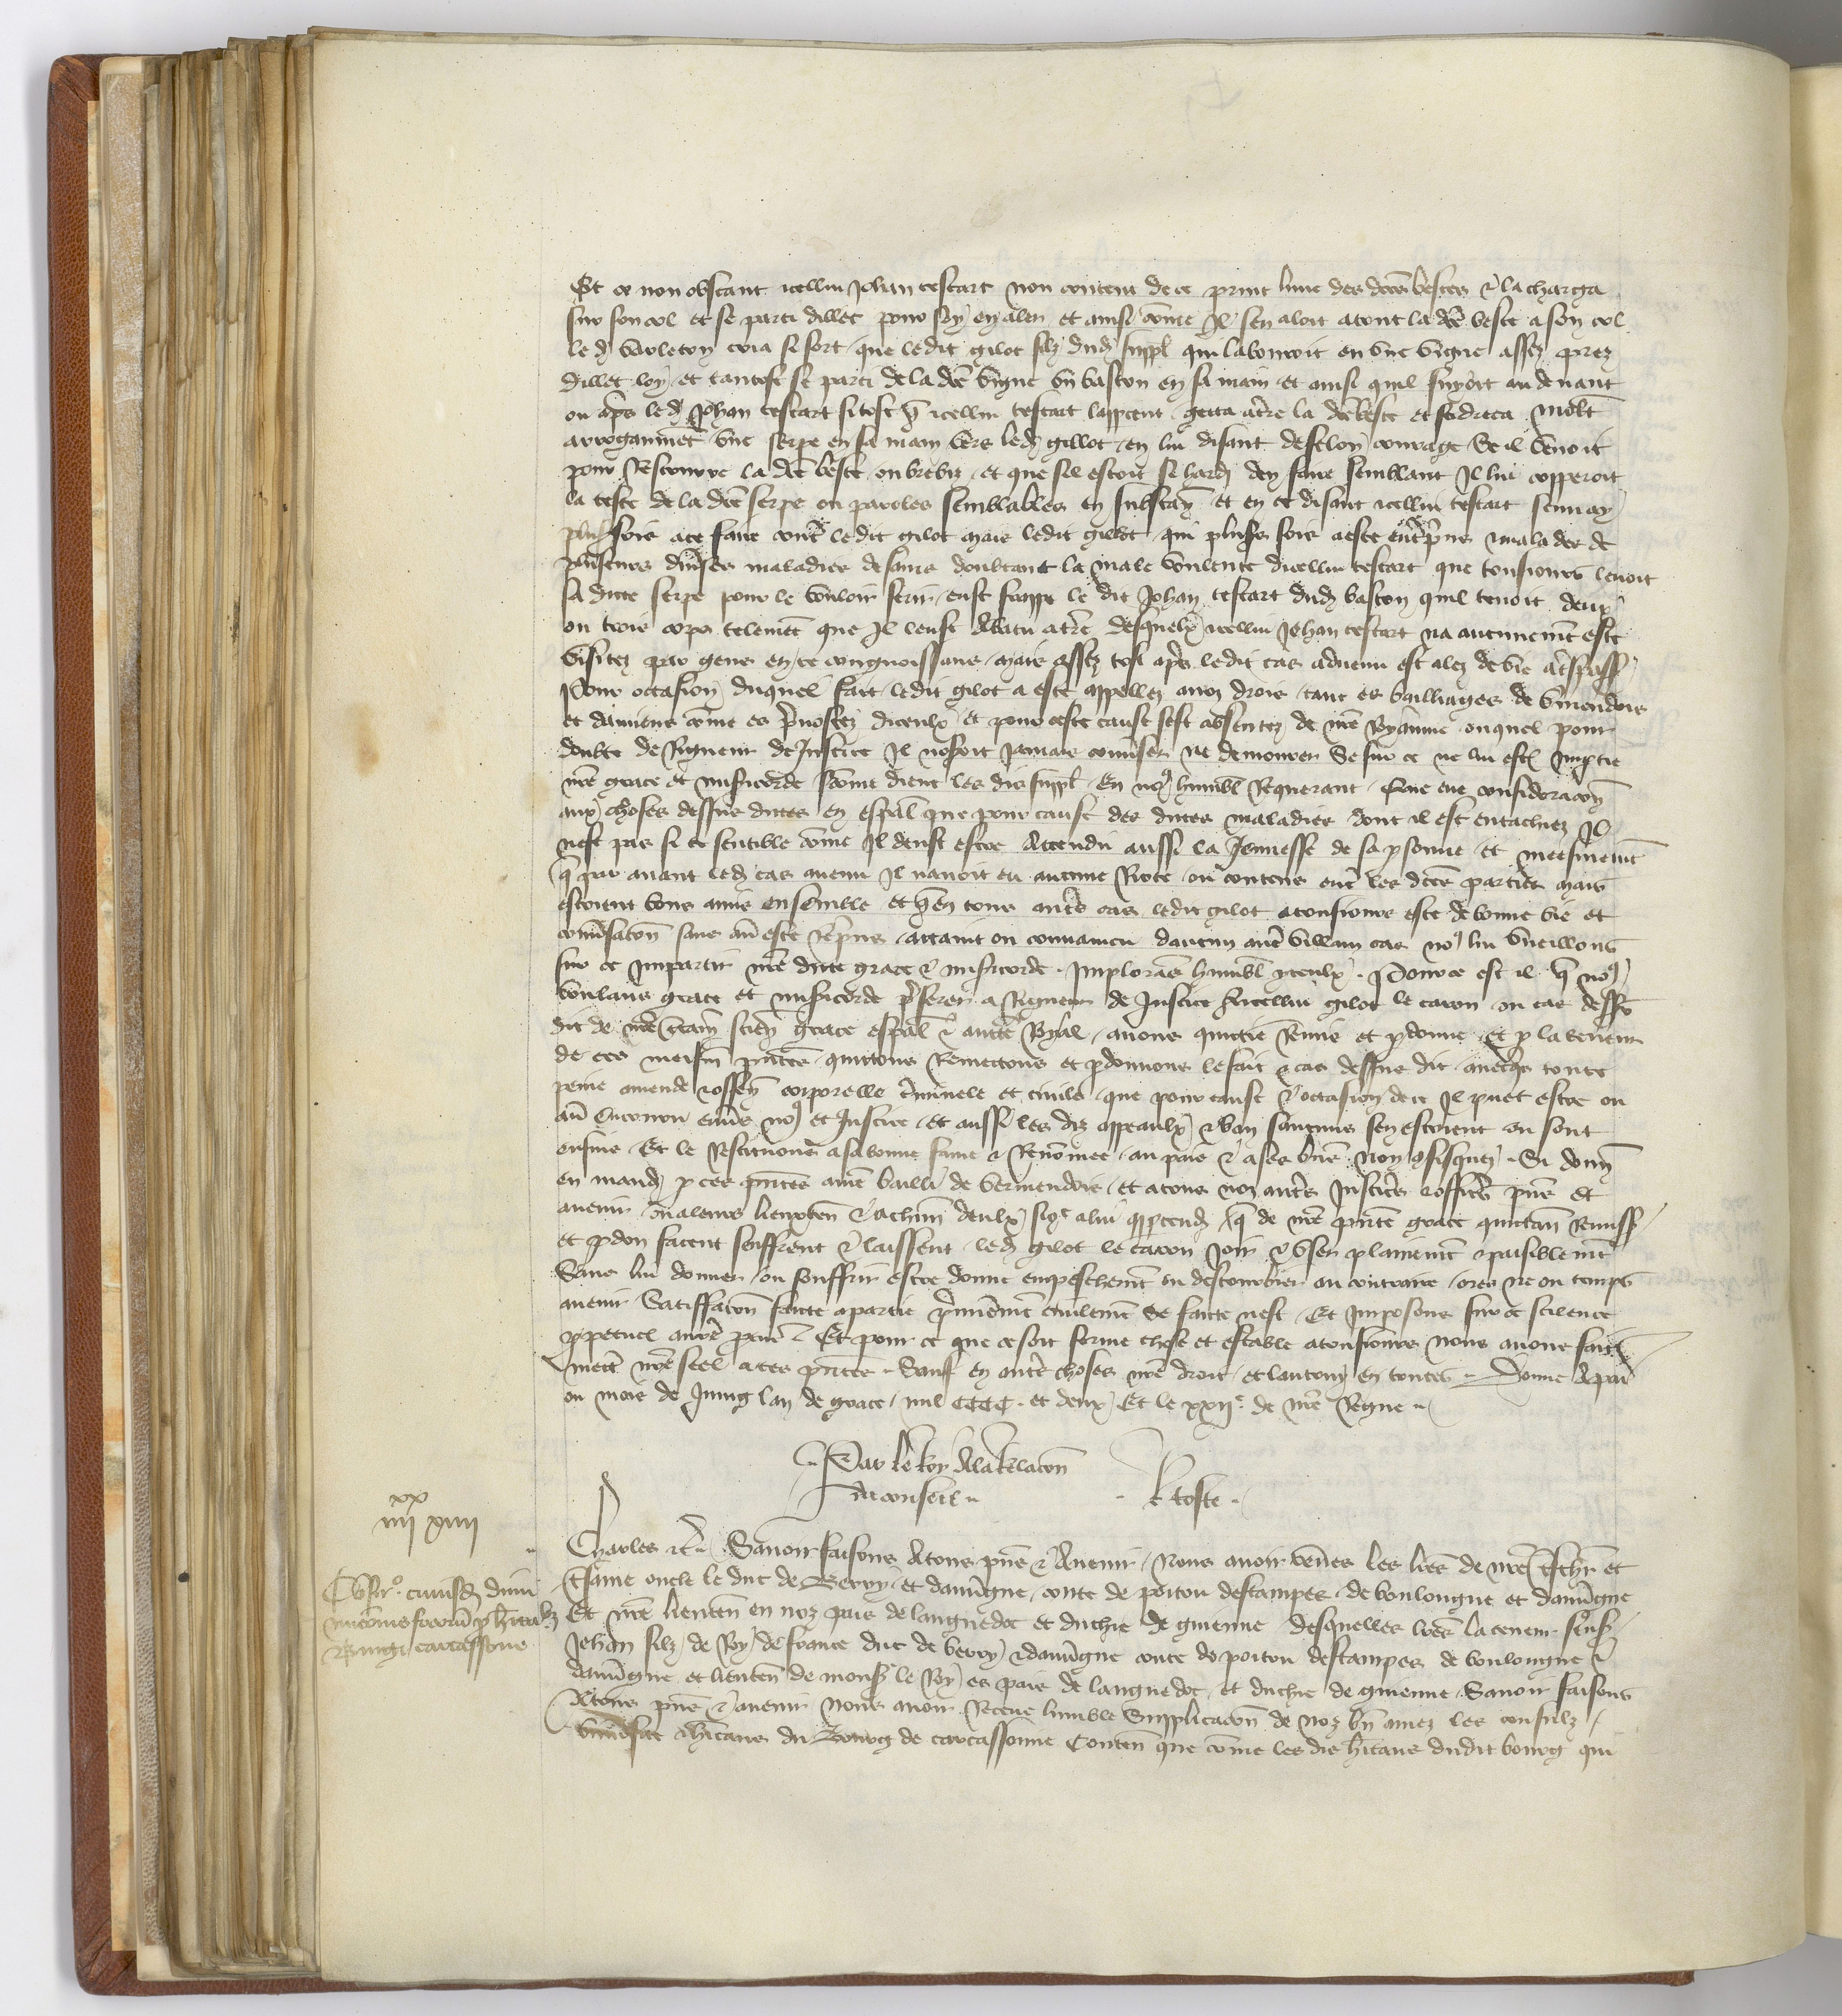 Et ce non obstant icellui Jehan testart non content de ce print lune des dces bestes & la charga
sur son col et se parti dillec pour soy en aler et ainsi come Il sen aloit atout la dce beste a son col
le d varleton cria si fort que ledit gilot filz dud suppl qui labouroit en une vigne assez prez
dillec loy et tantost se parti de la dce vigne un baston en sa main et ainsi quil suyoit au devant
ou apres led Jehan testart si tost q icellui testart lapcent getta atre la dce beste et sadreca molt
arroganment une serpe en sa main vers led gillot en lui disant de felon courage Se il venoit
pour Rescourre la dce beste ou brebiz et que sil estoit si hardi den faire semblant Il lui copperoit
la teste de la dce serpe ou paroles semblables en substan et en ce disant icellui testart
foiz a ce faire contre ledit gilot mais ledit gillot qui pluss fois a este malades de
pluseurs diverses maladies de sains doubtant la male voulente dicellui testart que tousiours levoit
sa dicte serpe pour le vouloir ferir eust frappe le dit Jehan testart dud baston quil tenoit deux
ou trois cops telemet que Il leust Abatu atre desquelx icellui Jehan testart na aucunemt este
visitez par gens en ce congnoissans mais assez tost apres ledit cas advenu est alez de vie a trespass
Pour occasion duquel fait ledit gilot a este appellez a noz drois tant es bailliages de vermendois
et damiens come es prevostez diceulx et pour ceste cause sest absentez de nre Royaume ouquel pour
doubte de Rigueur de Justice Il noseroit Jamais converser ne demourer Se sur ce ne lui est Imptie
nre grace et misericorde sicome dient les dis suppl En no humbl Requerant Que eue consideracon
aux choses dessus dictes en espal que pour cause des dictes maladies dont il est entachiez Il
nest pas si sensible come Il deust estre Attendu aussi la Jeunesse de sa psonne et meesmemt
q par avant led cas avenu Il navoit eu aucune Riote ou contens entre les dces parties mais
estoient bons amis ensemble et q en tous autres cas ledit gilot a tousiours este de bonne vie et
conversacon sans avoir este Repns attaint ou convaincu daucun autre villain cas no lui vueillons
sur ce Impartir nre dicte grace & misericorde Implorans humbl yceulx Pource est il q no
voulans grace et misericorde preferer a Rigueur de Justice A icellui gilot le caron ou cas dess
dit de nre certain scien grace espal & auct Royal avons quictie Remis et pdonne et p la teneur
de ces meism pntes quictons Remettons et pdonnons le fait & cas dessus dit avecqs toute
peine amende & offen corporelle criminele et civile que pour cause & occasion de ce Il puet estre ou
avoir encouru envers no et Justice Et aussi les diz appeaulx & ban saucuns sen estoient ou sont
ensuis Et le Restituons a sa bonne fame & Renomee au pais & a ses biens non confisquez Si donn
en mand p ces pntes a nre bailli de vermendois et a tous noz autres Justiciers & officiers pns et
avenir ou a leurs lieuxten & a chun deulx sicoe a lui apptend q de nre pnte grace quictan Remiss
et pdon facent seuffrent & laissent led gilot le caron Joir & user plainemt & paisiblemt
Sans lui donner ou souffrir estre donne empeschemt ou destourbier au contraire ores ne ou temps
avenir Satisfacon faicte a partie premieremt civilemt se faicte nest Et Imposons sur ce scilence
ppetuel a nre pcur Et pour ce que ce soit ferme chose et estable a tousiours nous avons fait
mectre nre seel a ces pntes Sauf en autres choses nre droit et lautruy en toutes Donne A paris
ou mois de Juing lan de grace mil CCCC et deux Et le xxiie de nre Regne
Par le Roy A la Relacon
du conseil
iiiixx xiiii
Charles &c Savoir faisons A tous pns & Avenir Nous avoir veues les lres de nre treschier et
tsame oncle le duc de Berry et dauvgne conte de poitou destampes de boulongne et dauvgne
Et nre lieuten en noz pais de languedoc et duchie de guienne desquelles lres la teneur sensuit
Jehan filz de Roy de france duc de berry & dauvgne conte de poitou destampes de boulongne &
dauvgne et lieuten de monss le Roy es pais de languedoc et duchie de guienne Savoir faisons
A tous pns & avenir nous avoir Receue humble Supplicacon de noz bn amez les consulz
universite & hitans du Bourg de carcassonne Conten que come les dis hitans dudit bourg qui